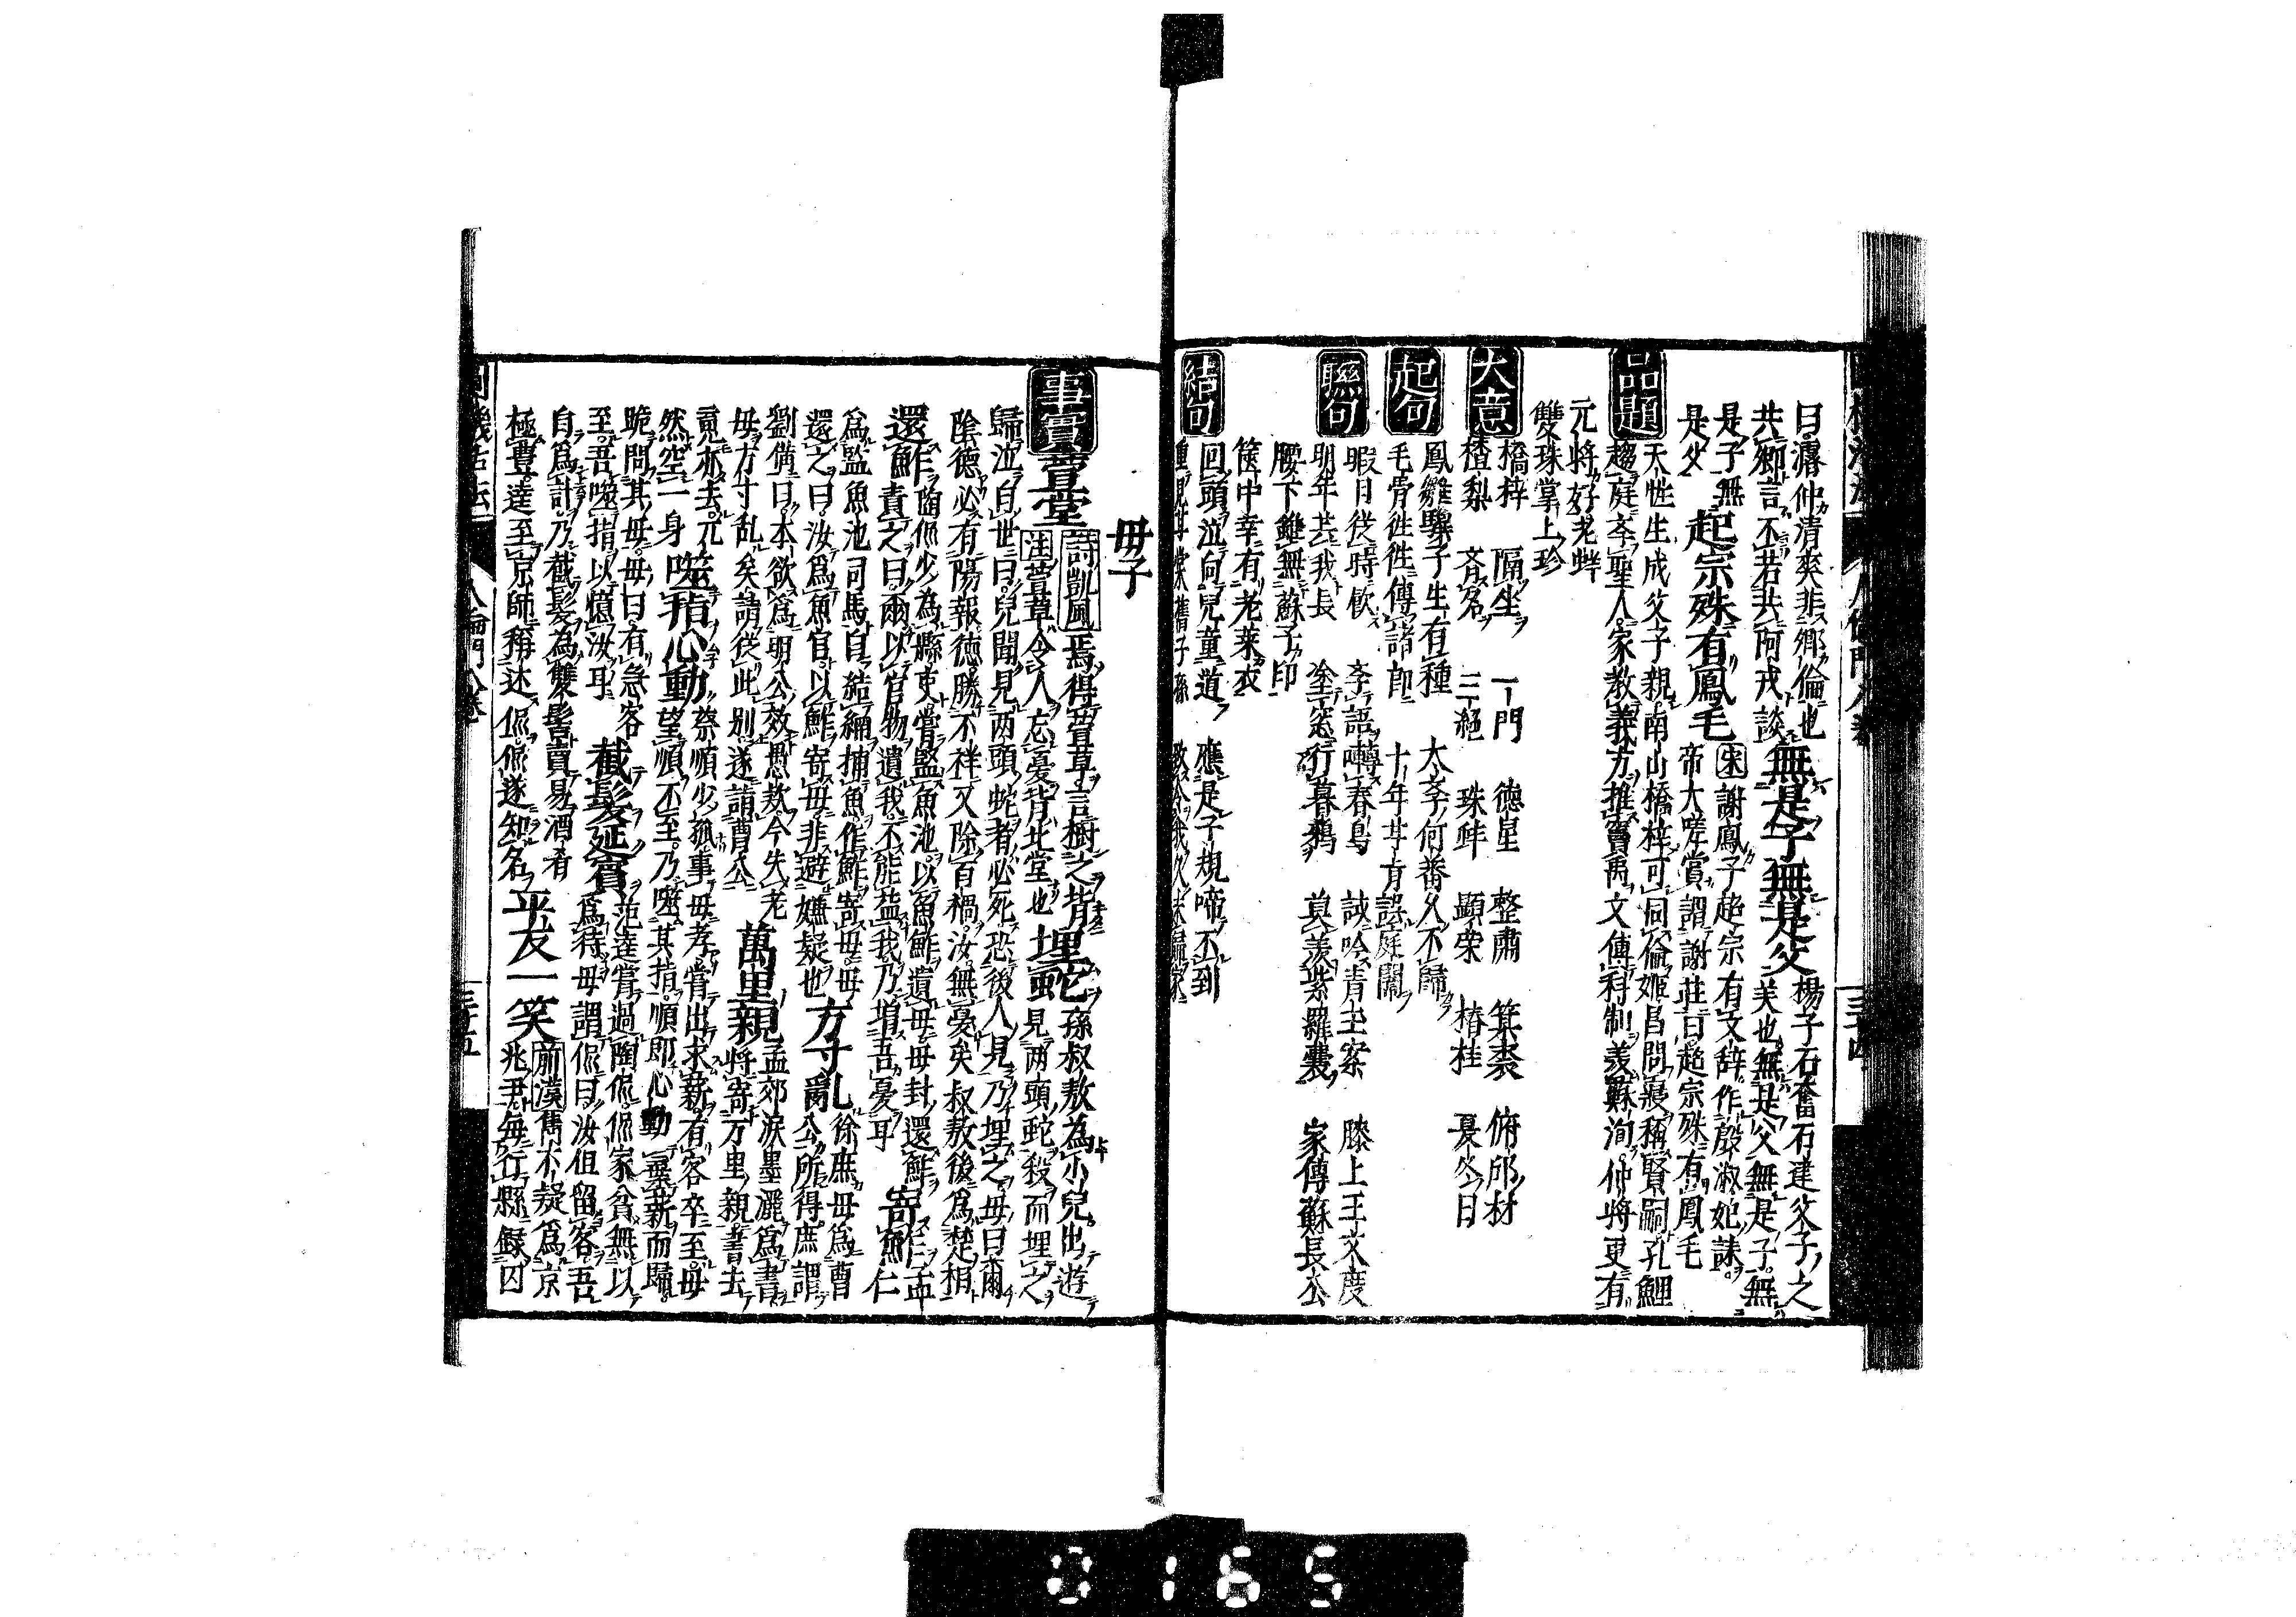 曰濬仲清爽非鄉倫也
共鄉言不若共阿戎談 無是子無是父 楊子石奮石建父子之
美也無是父無是子無
是子無
是父 起宗殊有鳳毛 宋謝鳳子超宗有文辞作殷淑妃誄
帝大嗟賞謂謝莊曰超宗殊有鳳毛
品題 天性生成父子親南山橋梓可同倫姬昌問寢稱賢嗣孔鯉
趨庭本聖人家教義方推竇禹文傳科制羨蘇洵仲將更有
元將好老蚌
雙珠掌上珍
大意 橋梓 隔坐 一門 德星 整肅 箕裘 俯仰材
楂梨 斉名 三絕 珠蚌 顯榮 椿桂 夏冬日
起句 鳳雛驥子生有種 太李何蕃久不歸
毛骨徃徃傳諸郎 十年
聯句 暇日從時飲 春鳥 誠吟青玉案 膝上王文度
明年共我長 莫羨紫羅囊 家傳蘇長公
腰下雖無蘇子印
篋中幸有老萊衣
結句 回頭泣向兒童道 應是子規啼不到
母子
事實 萱堂 詩凱風 焉得萱草言樹之背
注 萱草令人忘憂背北堂也 埋蛇 孫叔敖為小兒出遊
見两頭蛇殺而埋之
歸泣白世曰兒聞見两頭蛇者必死恐後人見乃埋之母曰爾
陰德必有陽報德勝不祥又除百禍汝無憂矣叔敖後爲楚相
還鮓 陶侃少為縣吏嘗監魚池以魚鮓遺母母封還鮓
責之曰爾以官物遺我不能益我乃增吾憂耳 寄鮓 仁孟
仁
爲監魚池司馬自結網捕魚作鮓寄母母
還之曰汝爲魚官以鮓寄母非避嫌疑也 方寸亂 徐庶母爲曹
公所得庶謂
劉備曰本欲爲明公效愚款今失老
母方寸乱矣請從此别遂詣曹公 萬里親 孟郊淚墨灑爲書
將寄万里親書去
竟亦去兀
然空一身 噬指心動 蔡順少孤事母孝嘗出求薪有客卒至母
望順不至乃噬其指順即心動棄薪而歸
跪問其母母曰有急客
至吾噬指以憶汝耳 截髮延賓 范逵嘗過陶侃侃家貧無以
爲待母謂侃曰汝但留客吾
自爲計乃截髮為雙髢賣易酒肴
極豊逵至京師稱述侃侃遂知名 平反一笑 前漢雋不疑爲京
兆尹每行縣録囚